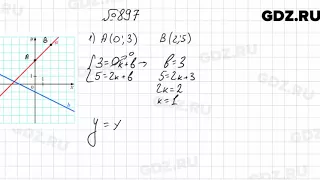 GDZ.RU
№897
1) A(0;3) B(2;5)
{3=0k+b => b=3
{5=2k+b 5=2k+3
2k=2
k=1
A
y=x